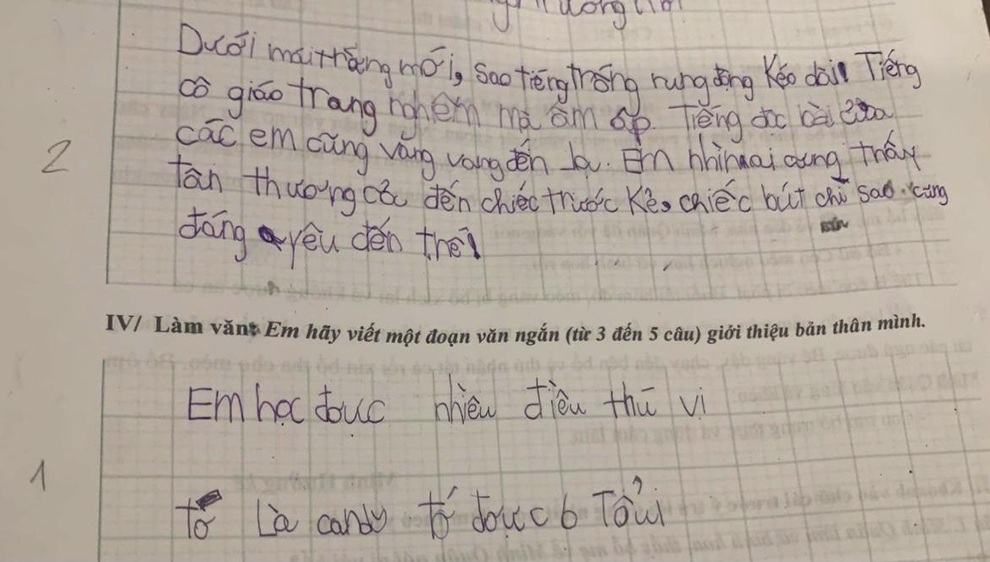 Dưới mái trường mới, sao tiếng trống rung động kéo dài! Tiếng
cô giáo trang nghêm mà ấm áp. Tiếng đọc bài của
các em cũng vang vang đến lạ. Em nhìn ai cũng thấy
2
tân thương cả đến chiếc trước kẻ, chiếc bút chì sao cũng
đáng yêu đến thế!
IV/ Làm văn: Em hãy viết một đoạn văn ngắn (từ 3 đến 5 câu) giới thiệu bản thân mình.
Em học đươc nhiều điều thú vi
1
tớ Là candy tớ được 6 Tổủi